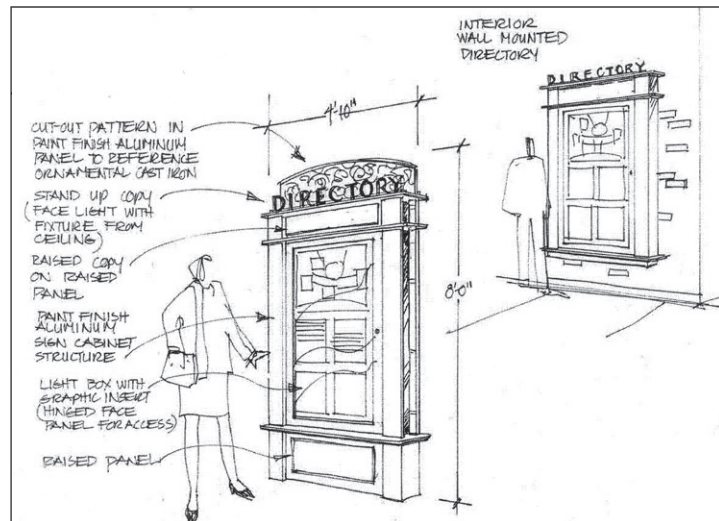 INTERIOR
WALL MOUNTED
DIRECTORY
DIRECTORY
4'-10"
CUT-OUT PATTERN IN
PAINT FINISH ALUMINUM
PANEL TO REFERENCE
ORNAMENTAL CAST IRON
STAND UP COPY
(FACE LIGHT WITH
FIXTURE FROM
CEILING)
RAISED COPY
ON RAISED
PANEL
PAINT FINISH
ALUMINUM
SIGN CABINET
STRUCTURE
LIGHT BOX WITH
GRAPHIC INSERT
(HINGED FACE
PANEL FOR ACCESS)
RAISED PANEL
DIRECTORY
8'-0"